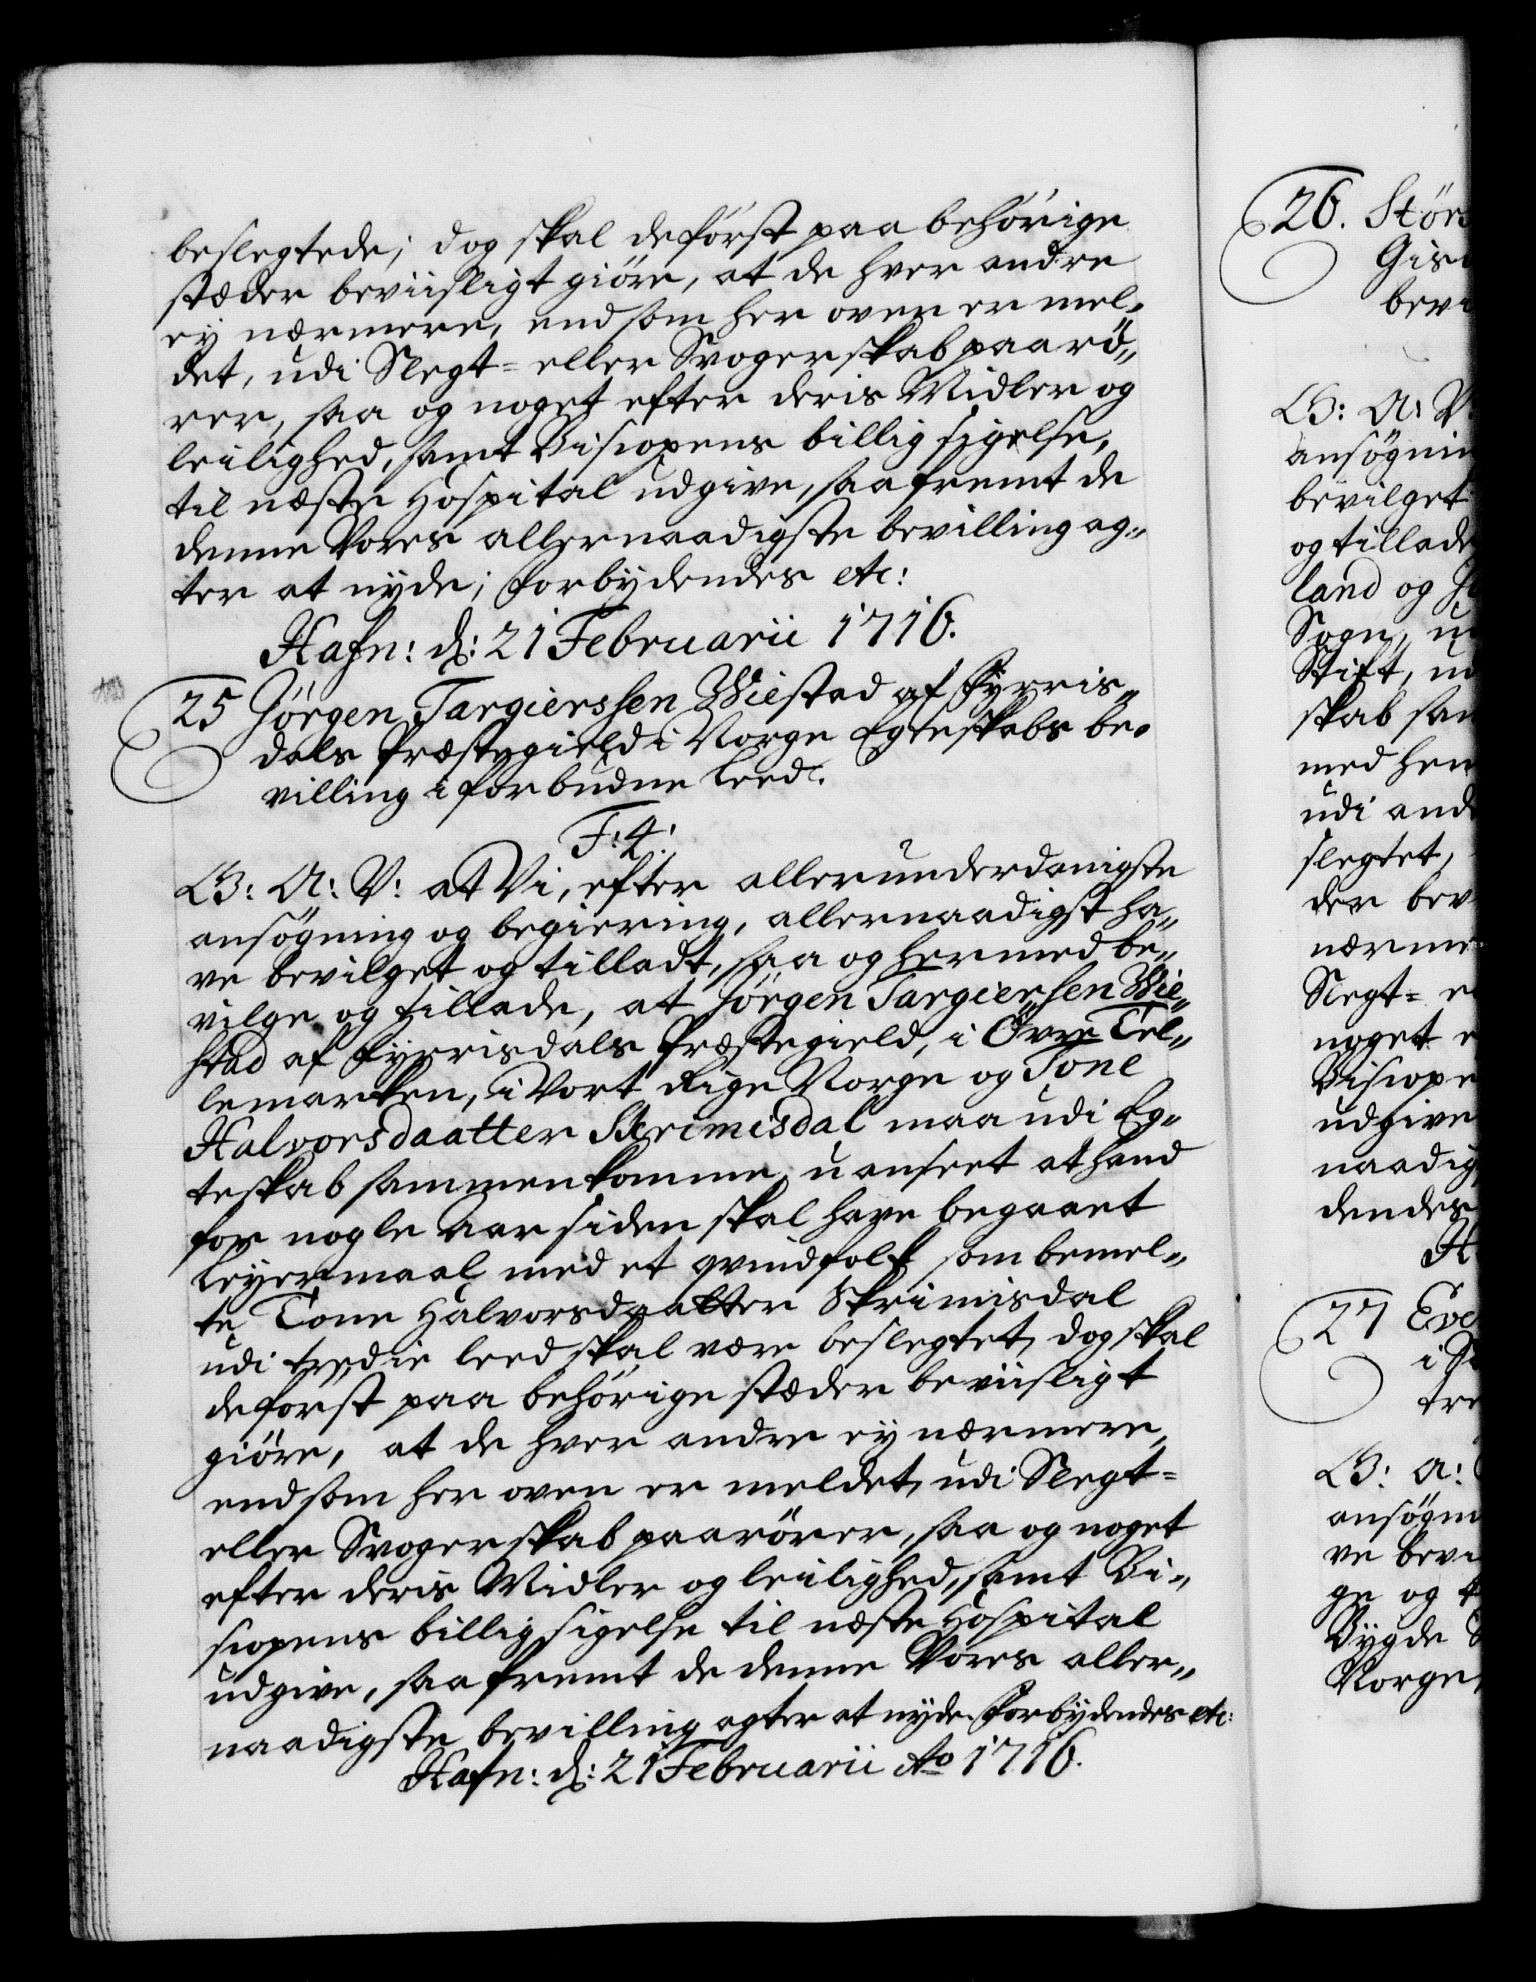 beslegtede; dog skal de först paa behörige
stæder beviisligt giöre, at de hver andre
ey nærmere, end som her oven er mel„
det, udi Slegt= eller Svogerskab paarö„
rer, saa og noget efter deris Midler og
leilighed, samt Bispens billig sigelse,
til næste Hospital udgive, saafremt de
denne Vores allernaadigste bevilling ag„
ter at nyde; Forbydendes etc:
Hafn: d: 21 Februarii 1716.
25 Jörgen Targierssen Wiestad af Fyrris„
dals Præstegield i Norge Egteskabs be„
villing i forbudne Leed.
F: 4:
G: A: V: at Vi, efter allerunderdanigste
ansögning og begiering, allernaadigst ha„
ve bevilget og tilladt, saa og hermed be„
vilge og tillade, at Jörgen Targiersen Wie„
stad af Fyrrisdals Præstegield, i Övre Tel„
lemarken, i Vort Rige Norge og Tone
Halvorsdaatter Skrimisdal maa udi Eg„
teskab sammenkomme, uanseet at hand
for nogle aar siden skal have begaaet
Leyermaal med et qvindfolk som bemel„
te Tone Halvorsdaatter Skrimisdal
udi tredie leed skal være beslegtet, dog skal
de först paa behörige stæder beviisligt
giöre, at de hver andre ey nærmere,
end som her oven er meldet, udi Slegt=
eller Svogerskab paarörer, saa og noget
efter deris Midler og leilighed, samt Bi„
scopens billig sigelse til næste Hospital
udgive, saafremt de denne Vores aller„
naadigste bevilling agter at nyde. Forbydendes etc:
Hafn: d: 21 Februarii Ao 1716.
26. Störs
Gis
bevi
G: A: V:
ansögnin
bevilget
og tillade
land og
Sogn, u
Stift, u
skab sam
med hen
udi and
slegtet,
der bev
nærme
Slegt= e
noget e
Biscope
udgive
naadig
dendes
H
27 Eve
i
tre
G: A:
ansögn
ve bevi
ge og t
Bygde
Norge,